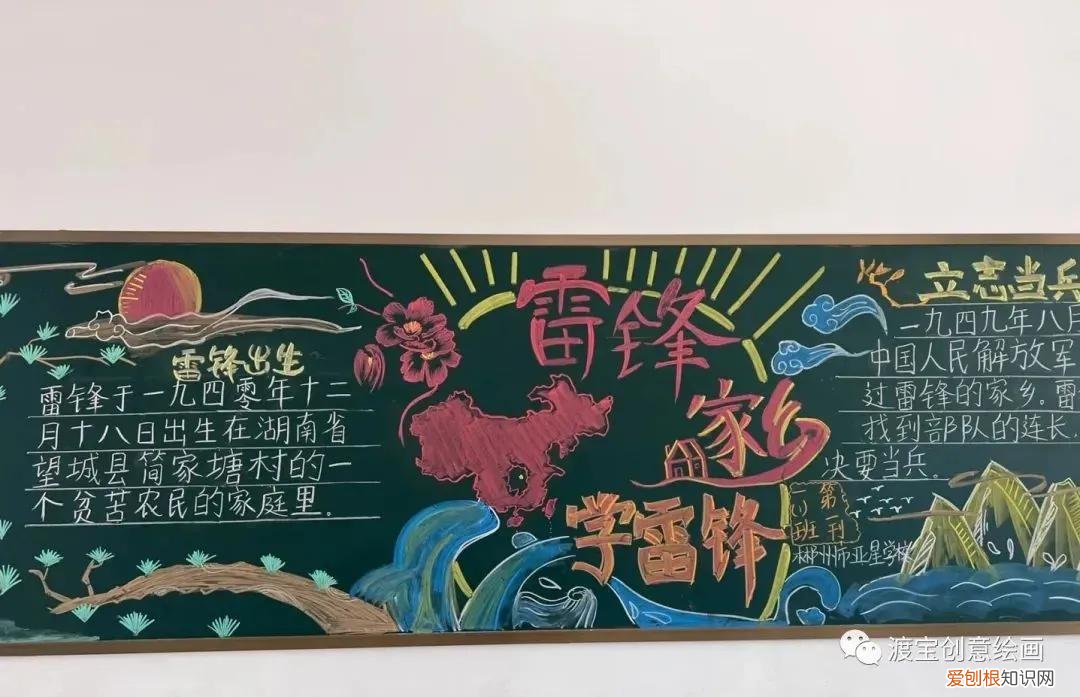 雷锋出生
雷锋于一九四零年十二
月十八日出生在湖南省
望城县简家塘村的一
个贫苦农民的家庭里.
雷锋
家乡
学雷锋
第一刊
班
郴州市亚星学校
立志当兵
一九四九年八月
中国人民解放军
过雷锋的家乡.雷
找到部队的连长
决要当兵.
渡宝创意绘画
爱刨根知识网